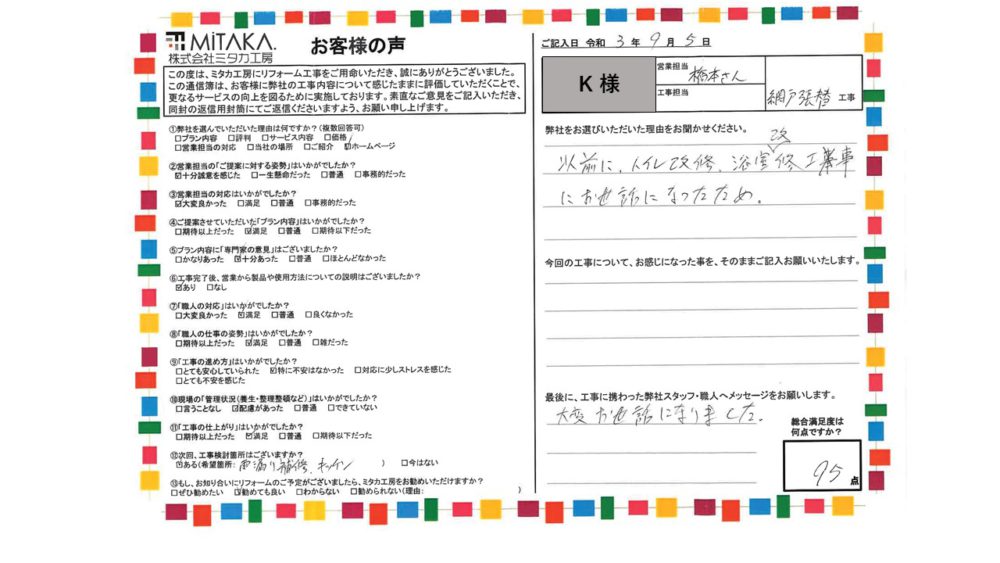 MiTAKA.
株式会社ミタカ工房
お客様の声
この度は、ミタカ工房にリフォーム工事をご用命いただき、誠にありがとうございました。
この通信簿は、お客様に弊社の工事内容について感じたままに評価していただくことで、
更なるサービスの向上を図るために実施しております。素直なご意見をご記入いただき、
同封の返信用封筒にてご返信くださいますよう、お願い申し上げます。
①弊社を選んでいただいた理由は何ですか?(複数回答可)
□プラン内容 □評判 □サービス内容 □価格
□営業担当の対応 □当社の場所 □ご紹介 ☑ホームページ
②営業担当の「ご提案に対する姿勢」はいかがでしたか?
☑十分誠意を感じた □一生懸命だった □普通 □事務的だった
③営業担当の対応はいかがでしたか?
☑大変良かった □満足 □普通 □事務的だった
④ご提案させていただいた「プラン内容」はいかがでしたか?
□期待以上だった ☑満足 □普通 □期待以下だった
⑤プラン内容に「専門家の意見」はございましたか?
□かなりあった ☑十分あった □普通 □ほとんどなかった
⑥工事完了後、営業から製品や使用方法についての説明はございましたか?
☑あり □なし
⑦「職人の対応」はいかがでしたか?
□大変良かった ☑満足 □普通 □良くなかった
⑧「職人の仕事の姿勢」はいかがでしたか?
□期待以上だった ☑満足 □普通 □雑だった
⑨「工事の進め方」はいかがでしたか?
□とても安心していられた ☑特に不安はなかった □対応に少しストレスを感じた
□とても不安を感じた
⑩現場の「管理状況(養生・整理整頓など)」はいかがでしたか?
□言うことなし ☑配慮があった □普通 □できていない
⑪「工事の仕上がり」はいかがでしたか?
□期待以上だった ☑満足 □普通 □期待以下だった
⑫次回、工事検討箇所はございますか?
☑ある(希望箇所: 雨漏り補修、キッチン ) □今はない
⑬もし、お知り合いにリフォームのご予定がございましたら、ミタカ工房をお勧めいただけますか?
□ぜひ勧めたい ☑勧めても良い □わからない □勧められない(理由: )
ご記入日 令和 3 年 9 月 5 日
K 様
営業担当 橋本さん
工事担当
網戸張替 工事
弊社をお選びいただいた理由をお聞かせください。
以前に、トイレ改修、浴室改修工事
にお世話になったため。
今回の工事について、お感じになった事を、そのままご記入お願いいたします。
最後に、工事に携わった弊社スタッフ・職人へメッセージをお願いします。
大変お世話になりました。
総合満足度は
何点ですか?
95 点